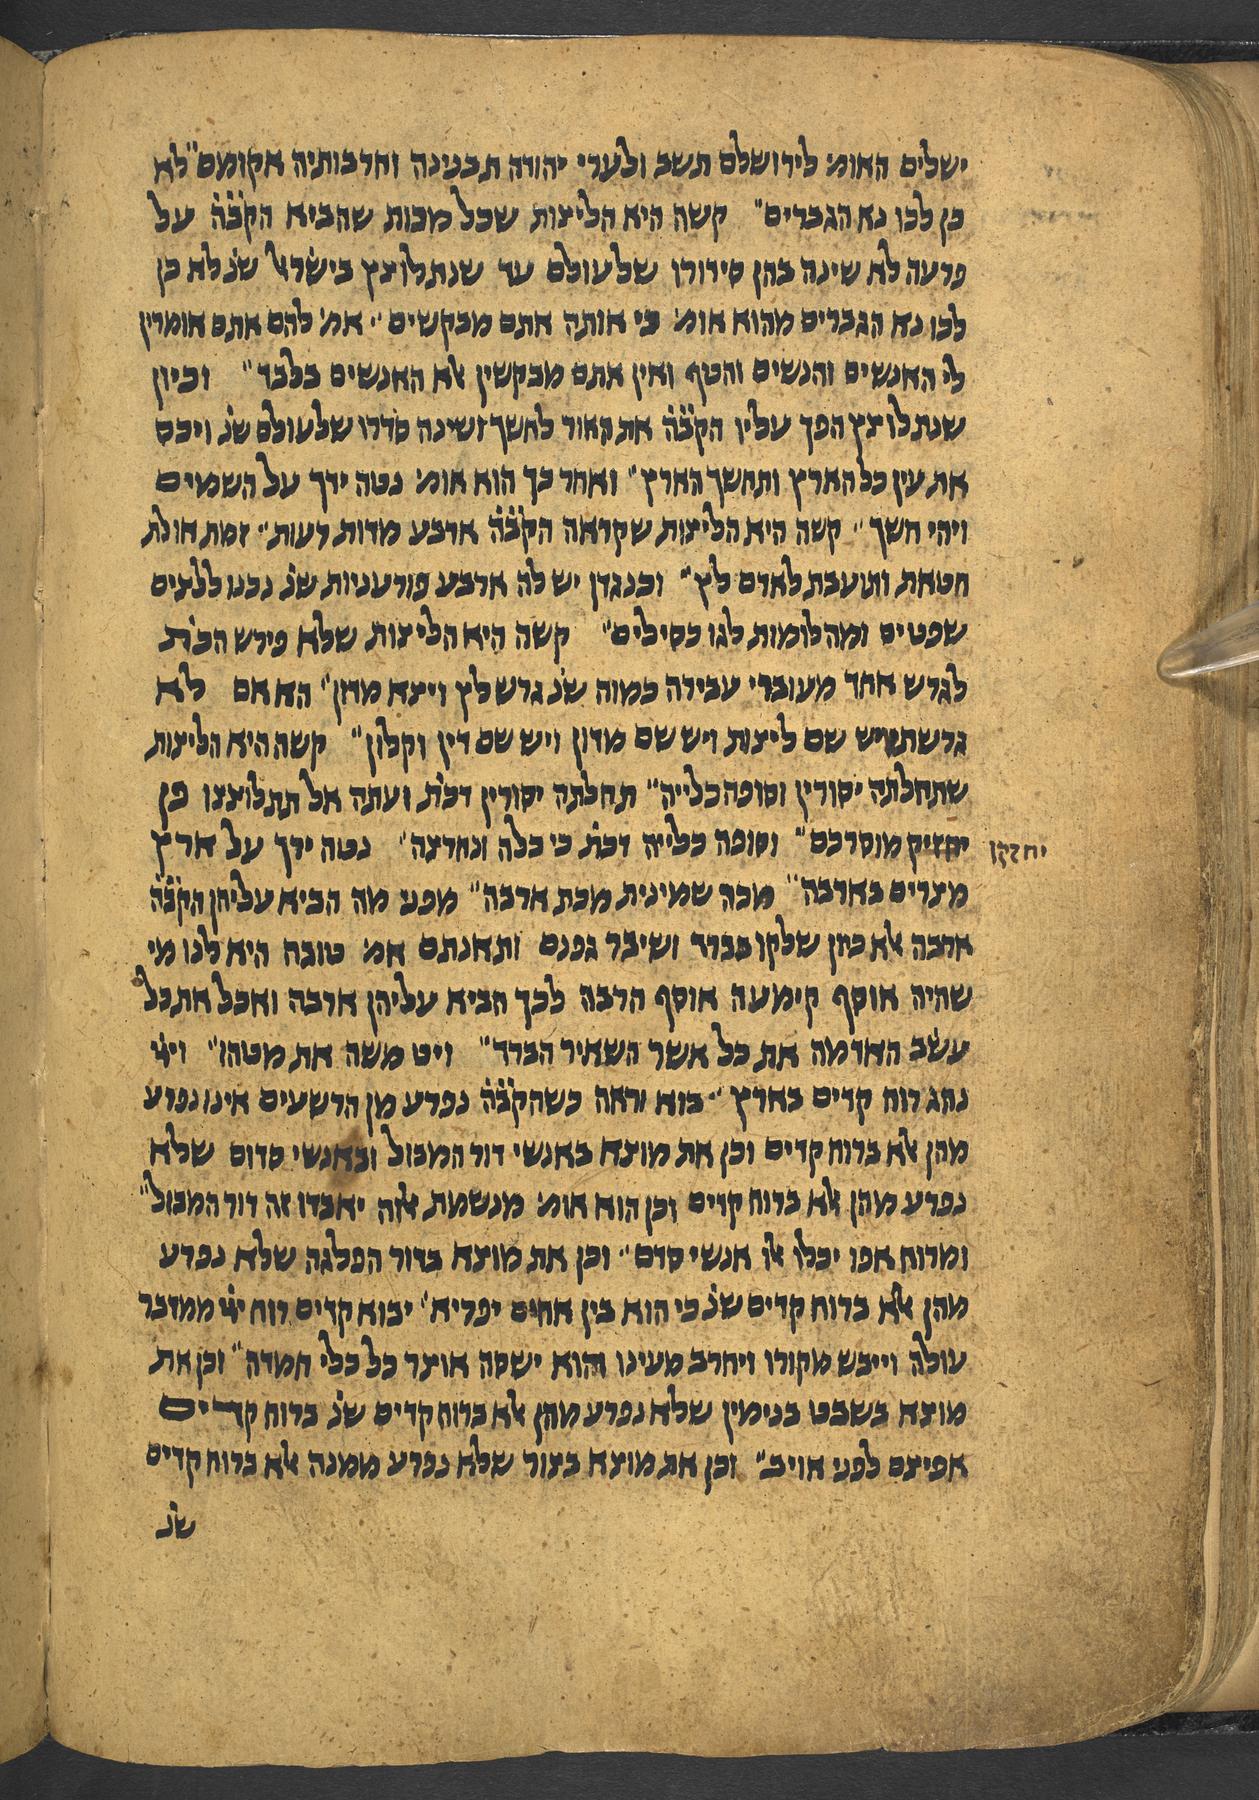 ישלים האומ׳ לירושלם תשב ולערי יהודה תבנינה וחרבותיה אקומם״ לא
כן לכו נא הגברים״ קשה היא הליצות שכל מכות שהביא הקב̇ה̇ על
פרעה לא שינה בהן סידורו שלעולם עד שנתלוצץ בישרא׳ שנ׳ לא כן
לכו נא הגברים מהוא אומ׳ כי אותה אתם מבקשים״ אמ׳ להם אתם אומרין
לי האנשים והנשים והטף ואין אתם מבקשין אלא האנשים בלבד״ וכיון
שנתלוצץ הפך עליו הקב̇ה̇ את האור לחשך ושינה סדרו שלעולם שנ׳ ויכס
את עין כל הארץ ותחשך הארץ״ ואחר כך הוא אומ׳ נטה ידך על השמים
ויהי חשך״ קשה היא הליצות שקראה הקב̇ה̇ ארבע מדות רעות״ זמת אולת
חטאת ותועבת לאדם לץ״ וכנגדן יש לה ארבע פורעניות שנ׳ נכונו ללצים
שפטים ומהלומות לגו כסילים״ קשה היא הליצות שלא פירש הכת׳
לגרש אחד מעוברי עבירה כמוה שנ׳ גרש לץ ויצא מדון״ הא אם לא
גרשתו יש שם ליצות ויש שם מדון ויש שם דין וקלון״ קשה היא הליצות
שתחלתה יסורין וסופה כלייה״ תחלתה יסורין דכת׳ ועתה אל תתלוצצו פן
יחזיק מוסרכם״ וסופה כלייה דכת׳ כי כלה ונחרצה״ נטה ידך על ארץ
יחזקו
מצרים בארבה״ מכה שמינית מכת ארבה״ מפני מה הביא עליהן הקב̇ה̇
ארבה אלא כיון שלקו בברד ושיבר גפנם ותאנתם אמ׳ טובה היא לנו מי
שהיה אוסף קימעה אוסף הרבה לכך הביא עליהן ארבה ואכל את כל
עשב האדמה את כל אשר השאיר הברד״ ויט משה את מטהו״ ויי׳
נהג רוח קדים בארץ״ בוא וראה כשהקב̇ה̇ נפרע מן הרשעים אינו נפרע
מהן אלא ברוח קדים וכן את מוצא באנשי דור המבול ובאנשי סדום שלא
נפרע מהן אלא ברוח קדים וכן הוא אומ׳ מנשמת אלוה יאבדו זה דור המבול״
ומרוח אפו יכלו אלו אנשי סדם״ וכן את מוצא בדור הפלגה שלא נפרע
מהן אלא ברוח קדים שנ׳ כי הוא בין אחים יפריא״ יבוא קדים רוח יי׳ ממדבר
עולה וייבש מקורו ויחרב מעינו והוא ישסה אוצר כל כלי חמדה״ וכן את
מוצא בשבט בנימין שלא נפרע מהן אלא ברוח קדים שנ׳ ברוח קדים
אפיצם לפני אויב״ וכן את מוצא בצור שלא נפרע ממנה אלא ברוח קדים
שנ׳